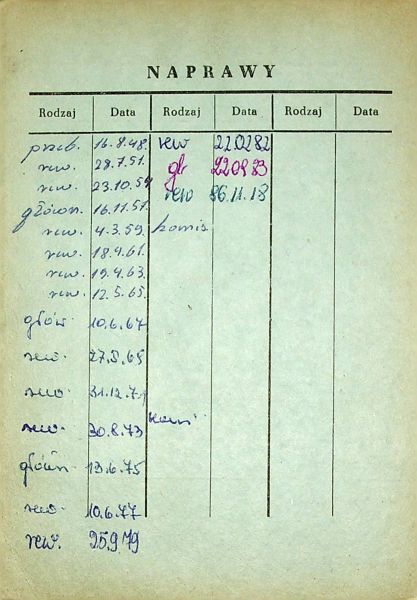 NAPRAWY
Rodzaj Data Rodzaj Data Rodzaj Data
przeb. 16.8.48. rew 220282
rew. 28.7.51. gł 220983
rew. 23.10.54 rew 86.11.18
główn. 16.11.57.
rew. 4.3.59. komis.
rew. 18.4.61.
rew. 19.4.63.
rew. 12.5.65.
głów. 10.6.67.
rew. 27.5.69
rew. 31.12.71
rew. 30.8.73
główn. 13.6.75
rew. 10.6.77
rew. 25.9.79